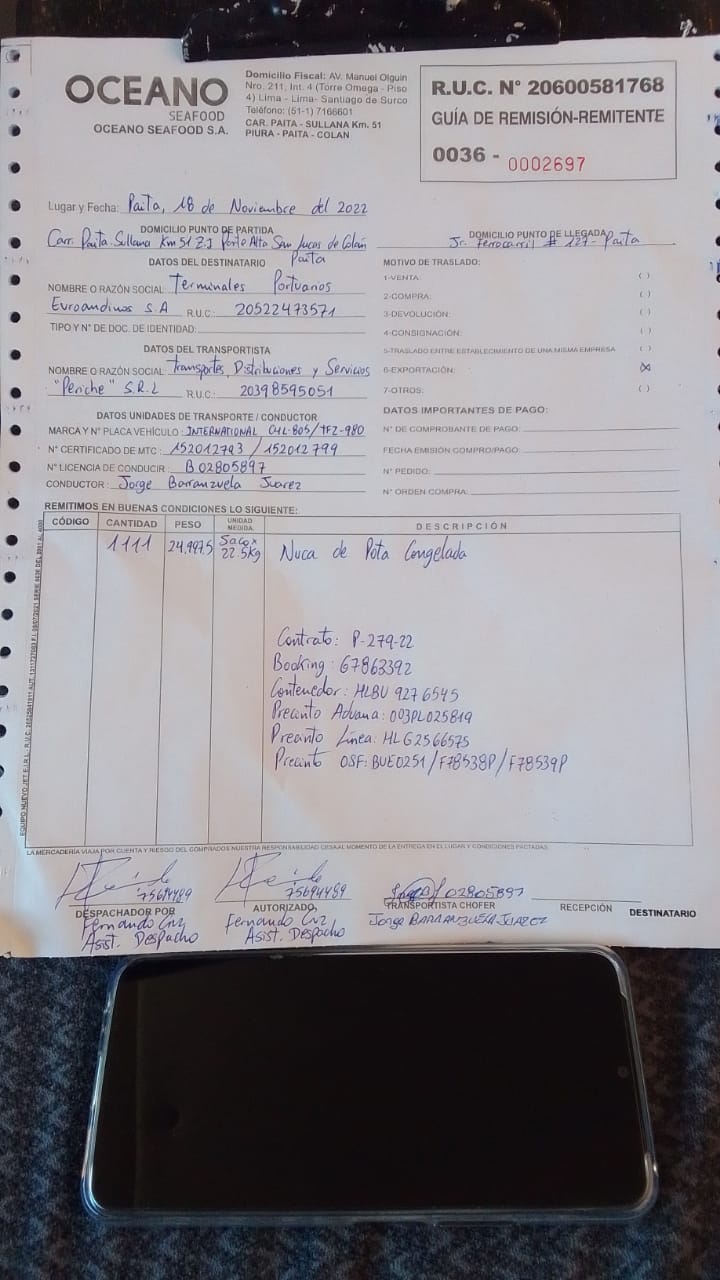 OCEANO
SEAFOOD
OCEANO SEAFOOD S.A.
Domicilio Fiscal: AV. Manuel Olguin
Nro. 211, Int. 4 (Torre Omega - Piso
4) Lima - Lima- Santiago de Surco
Teléfono: (51-1) 7166601
CAR. PAITA - SULLANA Km. 51
PIURA - PAITA - COLAN
R.U.C. N° 20600581768
GUÍA DE REMISIÓN-REMITENTE
0036 - 0002697
Lugar y Fecha: Paita, 18 de Noviembre del 2022
DOMICILIO PUNTO DE PARTIDA
Carr. Paita Sullana Km 51 Z.I Porto Alto San Lucas de Colán
Paita
DOMICILIO PUNTO DE LLEGADA
Jr. Ferrocarril # 127 - Paita
DATOS DEL DESTINATARIO
NOMBRE O RAZÓN SOCIAL: Terminales Portuarios
Euroandinos S.A R.U.C.: 20522473571
TIPO Y N° DE DOC. DE IDENTIDAD:
DATOS DEL TRANSPORTISTA
NOMBRE O RAZÓN SOCIAL: Transportes, Distribuciones y Servicios
"Periche" S.R.L R.U.C.: 20398595051
DATOS UNIDADES DE TRANSPORTE / CONDUCTOR
MARCA Y N° PLACA VEHÍCULO: INTERNATIONAL
N° CERTIFICADO DE MTC: 152012793 / 152012799
N° LICENCIA DE CONDUCIR: B 02805897
CONDUCTOR: Jorge Barranzuela Juarez
MOTIVO DE TRASLADO:
1-VENTA: ( )
2-COMPRA: ( )
3-DEVOLUCIÓN: ( )
4-CONSIGNACIÓN: ( )
5-TRASLADO ENTRE ESTABLECIMIENTO DE UNA MISMA EMPRESA ( )
6-EXPORTACIÓN: (X)
7-OTROS: ( )
DATOS IMPORTANTES DE PAGO:
N° DE COMPROBANTE DE PAGO:
FECHA EMISIÓN COMPRO/PAGO:
N° PEDIDO:
N° ORDEN COMPRA:
REMITIMOS EN BUENAS CONDICIONES LO SIGUIENTE:
CÓDIGO CANTIDAD PESO UNIDAD MEDIDA DESCRIPCIÓN
1111 24,997.5 Saco x 22.5Kg Nuca de Pota Congelada
Contrato: P-279-22
Booking: 67863392
Contenedor: HLBU 927 6545
Precinto Aduana: 003PL025819
Precinto Línea: HLG2566575
Precinto OSF: BUE0251/F78538P/F78539P
LA MERCADERÍA VIAJA POR CUENTA Y RIESGO DEL COMPRADOS NUESTRA RESPONSABILIDAD CESA AL MOMENTO DE LA ENTREGA EN EL LUGAR Y CONDICIONES PACTADAS.
75694489
DESPACHADOR POR
Fernando Cruz
Asist. Despacho
75694489
AUTORIZADO
Fernando Cruz
Asist. Despacho
02805897
TRANSPORTISTA CHOFER
Jorge BARRANZUELA JUAREZ
RECEPCIÓN
DESTINATARIO